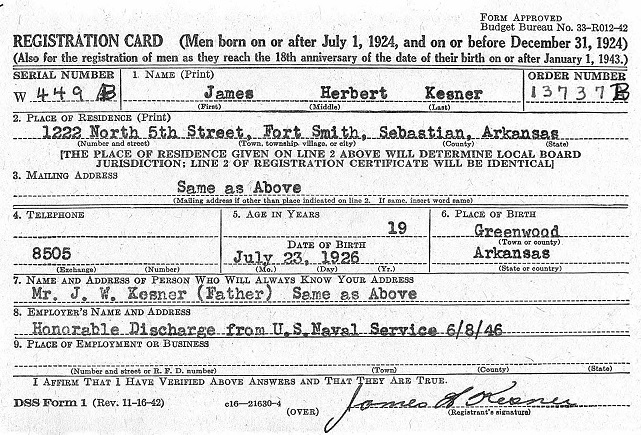 FORM APPROVED
Budget Bureau No. 33-R012-42
REGISTRATION CARD (Men born on or after July 1, 1924, and on or before December 31, 1924)
(Also for the registration of men as they reach the 18th anniversary of the date of their birth on or after January 1, 1943.)
SERIAL NUMBER 1. NAME (Print) ORDER NUMBER
W 449 James Herbert Kesner 13737
(First) (Middle) (Last)
2. PLACE OF RESIDENCE (Print)
1222 North 5th Street, Fort Smith, Sebastian, Arkansas
(Number and street) (Town, township, village, or city) (County) (State)
[THE PLACE OF RESIDENCE GIVEN ON LINE 2 ABOVE WILL DETERMINE LOCAL BOARD
JURISDICTION; LINE 2 OF REGISTRATION CERTIFICATE WILL BE IDENTICAL]
3. MAILING ADDRESS
Same as Above
(Mailing address if other than place indicated on line 2. If same, insert word same)
4. TELEPHONE 5. AGE IN YEARS 6. PLACE OF BIRTH
19 Greenwood
DATE OF BIRTH (Town or county)
8505 July 23, 1926 Arkansas
(Exchange) (Number) (Mo.) (Day) (Yr.) (State or country)
7. NAME AND ADDRESS OF PERSON WHO WILL ALWAYS KNOW YOUR ADDRESS
Mr. J. W. Kesner (Father) Same as Above
8. EMPLOYER'S NAME AND ADDRESS
Honorable Discharge from U.S.Naval Service 6/8/46
9. PLACE OF EMPLOYMENT OR BUSINESS
(Number and street or R. F. D. number) (Town) (County) (State)
I AFFIRM THAT I HAVE VERIFIED ABOVE ANSWERS AND THAT THEY ARE TRUE.
DSS Form 1 (Rev. 11-16-42) c16—21630-4 (OVER) James H Kesner
(Registrant's signature)